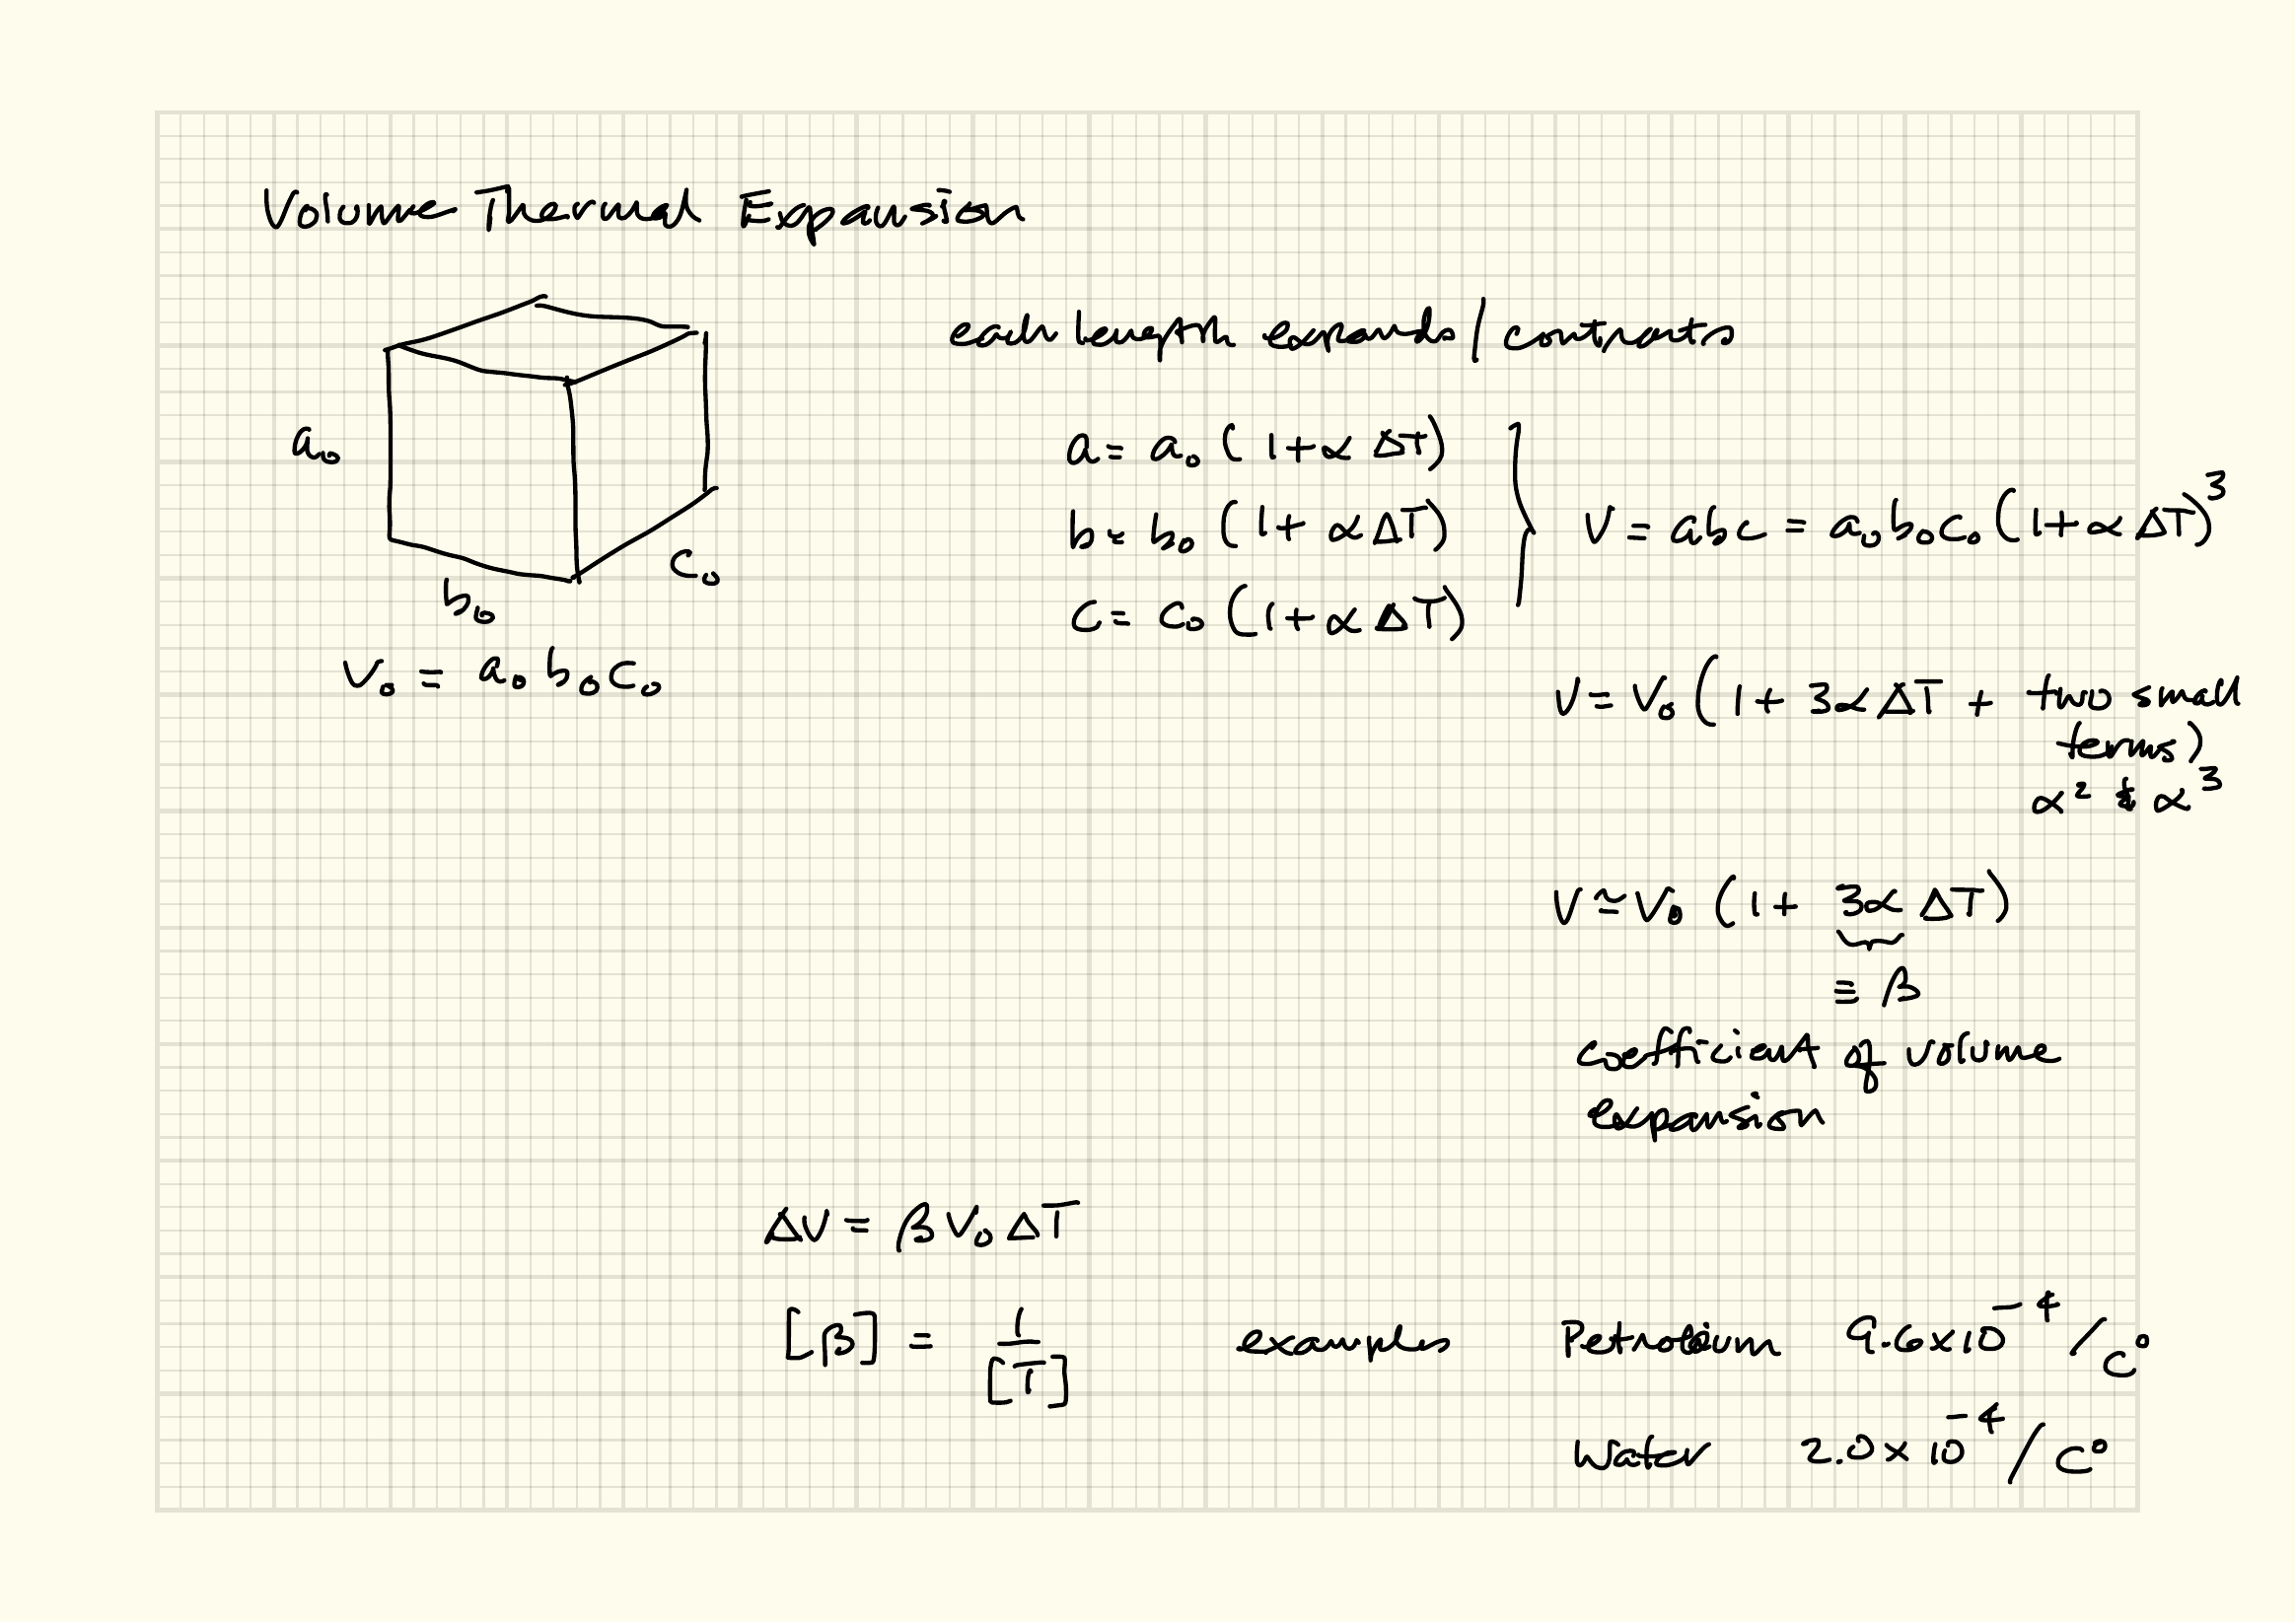 Volume Thermal Expansion
each length expands / contracts
a₀
b₀
c₀
V₀ = a₀ b₀ c₀
a = a₀ (1 + α ΔT)
b = b₀ (1 + α ΔT)
c = c₀ (1 + α ΔT)
V = abc = a₀b₀c₀ (1 + α ΔT)³
V = V₀ (1 + 3α ΔT + two small
terms)
α² & α³
V ≃ V₀ (1 + 3α ΔT)
≡ β
coefficient of volume
expansion
ΔV = β V₀ ΔT
[β] = 1/[T]
examples Petroleum 9.6 x 10⁻⁴ / C°
Water 2.0 x 10⁻⁴ / C°